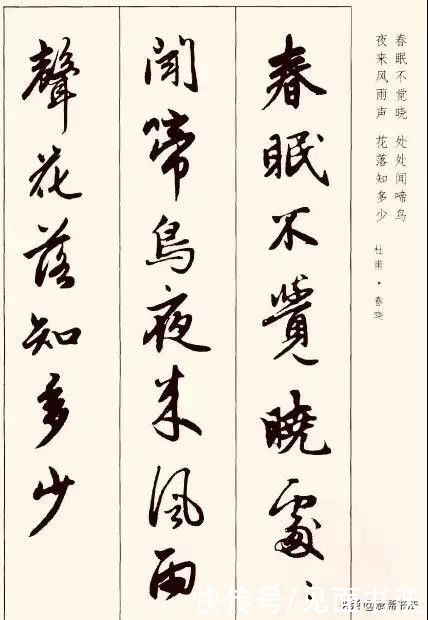 春眠不觉晓 处处闻啼鸟
夜来风雨声 花落知多少
杜甫·春晓
春眠不覺曉處、
聞啼鳥夜来風雨
聲花落知多少
快传号/见面书法